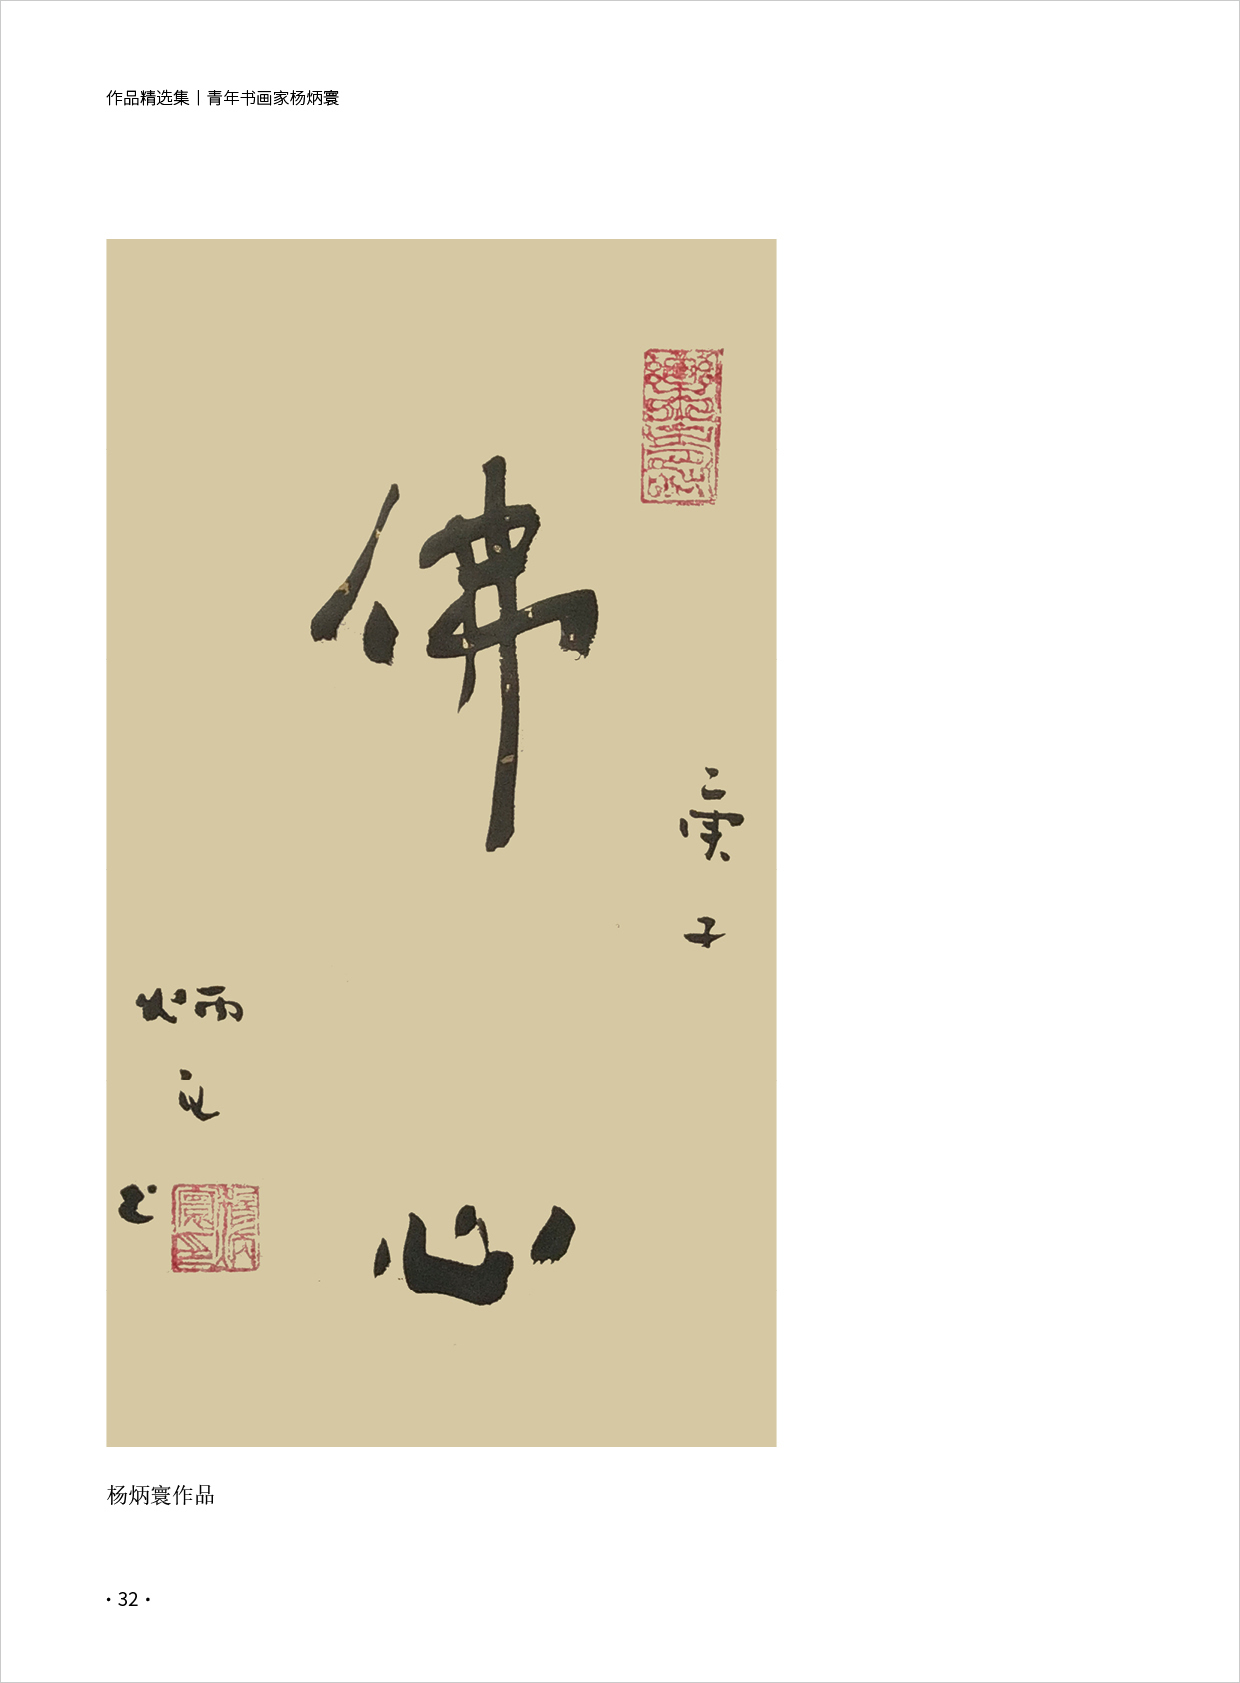 作品精选集丨青年书画家杨炳寰
佛心
庚子
炳
书
杨炳寰印
杨炳寰作品
·32·